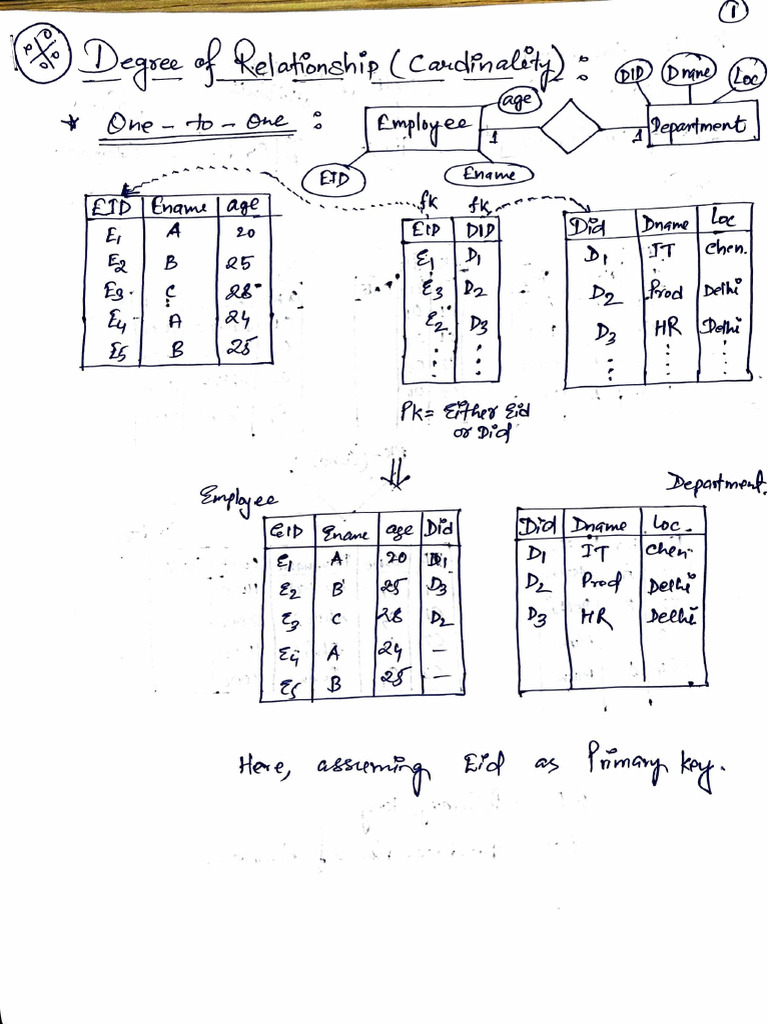 1
% % % %
Degree of Relationship (Cardinality) :
* One - to - One :
Employee
age
EID
Ename
1
1
Department
DID
Dname
Loc
EID Ename age
E1 A 20
E2 B 25
E3 C 28
E4 A 24
E5 B 25
fk fk
EID DID
E1 D1
E3 D2
E2 D3
Pk = Either Eid
or Did
Did Dname Loc
D1 IT Chen.
D2 Prod Delhi
D3 HR Delhi
⇓
Employee
EID Ename age Did
E1 A 20 D1
E2 B 25 D3
E3 C 28 D2
E4 A 24 —
E5 B 25 —
Department.
Did Dname Loc.
D1 IT Chen.
D2 Prod Delhi
D3 HR Delhi
Here, assuming Eid as Primary key.